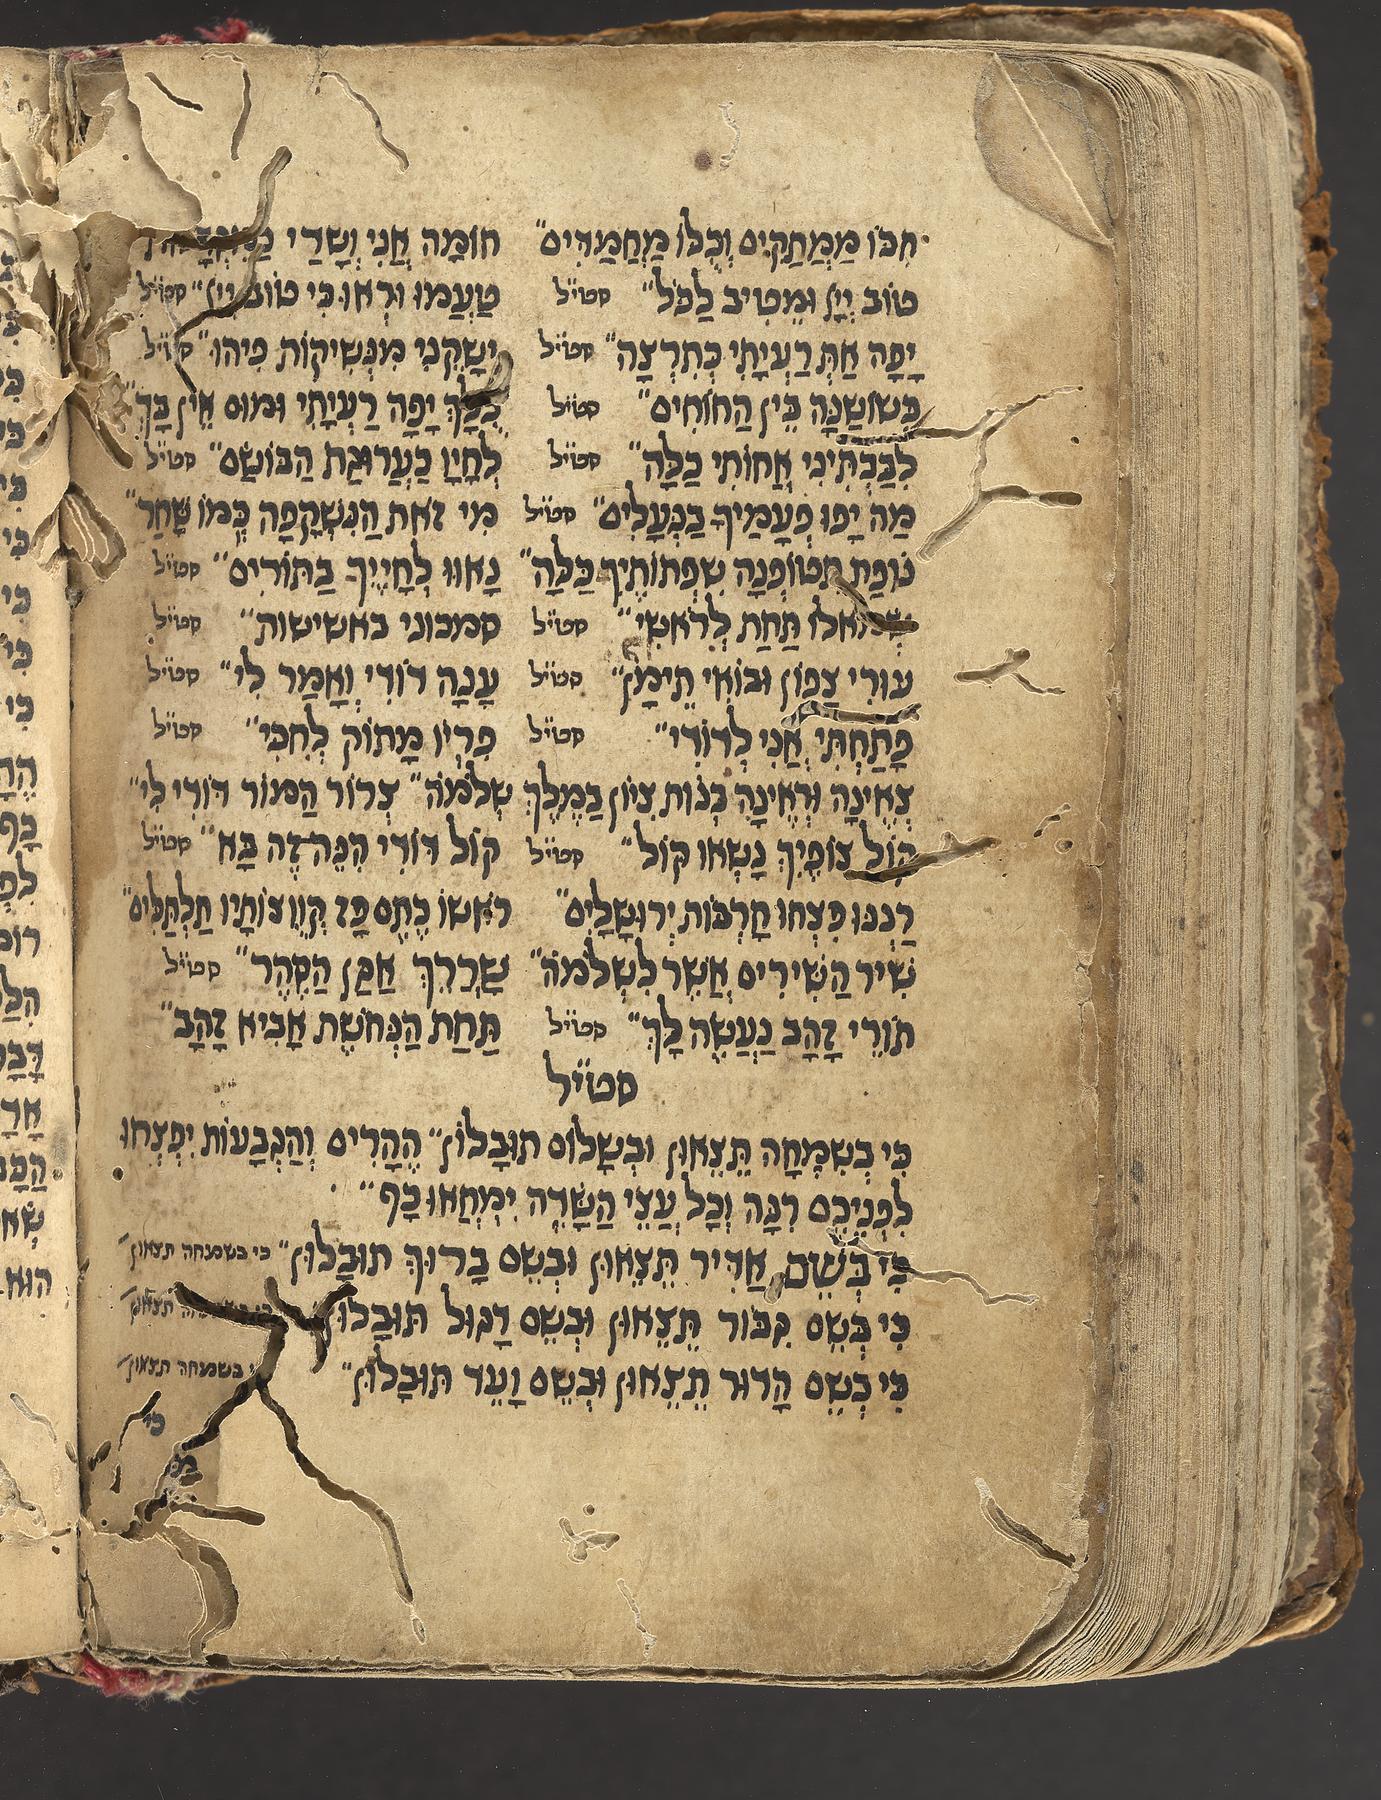 חִכּוֹ מַמְתַקִּים וְכֻלּוֹ מַחֲמַדִּים״ חוֹמָה אֲנִי וְשָׁדַי
טוֹב יְיָ וּמֵטִיב לַכֹּל״ סט״ל טַעֲמוּ וּרְאוּ כִּי טוֹב יְיָ״ סט״ל
יָפָה אַתְּ רַעְיָתִי כְּתִרְצָה״ סט״ל יִשָׁקֵנִי מִנְּשִׁיקוֹת פִּיהוּ״ סט״ל
כְּשׁוֹשַׁנָּה בֵּין הַחוֹחִים״ סט״ל כֻּלָּךְ יָפָה רַעְיָתִי וּמוּם אֵין בָּךְ״
לִבַּבְתִּינִי אֲחוֹתִי כַלָּה״ סט״ל לְחָיָו כַּעֲרוּגַת הַבּוֹשֶׂם״ סט״ל
מַה יָּפוּ פְעָמַיִךְ בַּנְּעָלִים״ סט״ל מִי זֹאת הַנִּשְׁקָפָה כְּמוֹ שָׁחַר״
נוֹפֶת תִּטּוֹפְנָה שִׂפְתוֹתַיִךְ כַּלָּה״ נָאווּ לְחָיַיִךְ בַּתּוֹרִים״ סט״ל
שְׂמֹאלוֹ תַּחַת לְרֹאשִׁי״ סט״ל סמכוני באשישות״ סט״ל
עוּרִי צָפוֹן וּבוֹאִי תֵימָן״ סט״ל עָנָה דוֹדִי וְאָמַר לִי״ סט״ל
פָּתַחְתִּי אֲנִי לְדוֹדִי״ סט״ל פִּרְיוֹ מָתוֹק לְחִכִּי״ סט״ל
צְאֶינָה וּרְאֶינָה בְּנוֹת צִיּוֹן בַּמֶּלֶךְ שְׁלֹמֹה״ צְרוֹר הַמּוֹר דּוֹדִי לִי״
קוֹל צוֹפַיִךְ נָשְׂאוּ קוֹל״ סט״ל קוֹל דּוֹדִי הִנֵּה זֶה בָּא״ סט״ל
רַנְּנוּ פִּצְחוּ חָרְבוֹת יְרוּשָׁלָיִם״ רֹאשׁוֹ כֶּתֶם פָּז קְוֻצּוֹתָיו תַּלְתַּלִּים״
שִׁיר הַשִּׁירִים אֲשֶׁר לִשְׁלֹמֹה״ שָׁרְרֵךְ אַגַּן הַסַּהַר״ סט״ל
תּוֹרֵי זָהָב נַעֲשֶׂה לָּךְ״ סט״ל תַּחַת הַנְּחֹשֶׁת אָבִיא זָהָב״
סט״ל
כִּי בְשִׂמְחָה תֵּצֵאוּן וּבְשָׁלוֹם תּוּבָלוּן״ הֶהָרִים וְהַגְּבָעוֹת יִפְצְחוּ
לִפְנֵיכֶם רִנָּה וְכָל עֲצֵי הַשָּׂדֶה יִמְחֲאוּ כָף״
כִּי בְּשֵׁם אַדִּיר תֵּצֵאוּן וּבְשֵׁם בָּרוּךְ תּוּבָלוּן״ כי בשמחה תצאון
כִּי בְּשֵׁם גִּבּוֹר תֵּצֵאוּן וּבְשֵׁם דָּגוּל תּוּבָלוּן תצאון
כִּי בְּשֵׁם הָדוּר תֵּצֵאוּן וּבְשֵׁם וָעֵד תּוּבָלוּן״ בשמחה תצאון
כי